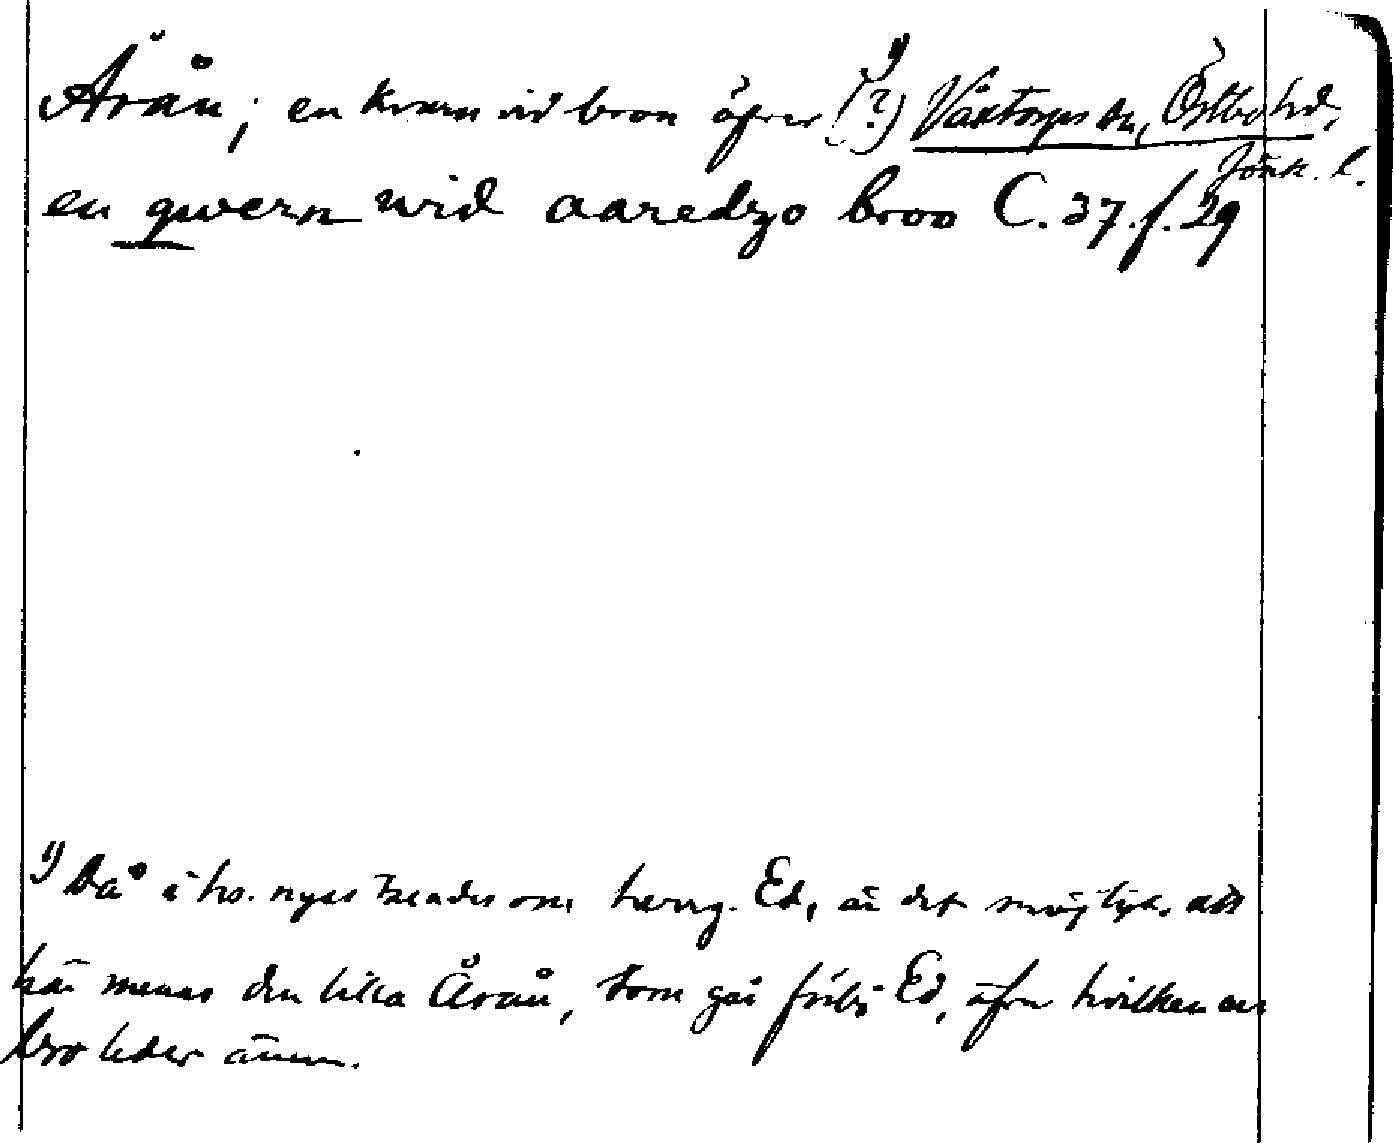 Åråån; en kvarn vid bron öfver (?) 1) Våxtorps sn, Östbo hd,
Jönk. l.
en qwern wid aaredzo broo C. 37. f. 29
1) Då i hs. nyss om herrg. Ed, är det möjligt att
här menas den lilla Åraån, som går förbi Ed, öfver hvilken en
bro leder ännu.